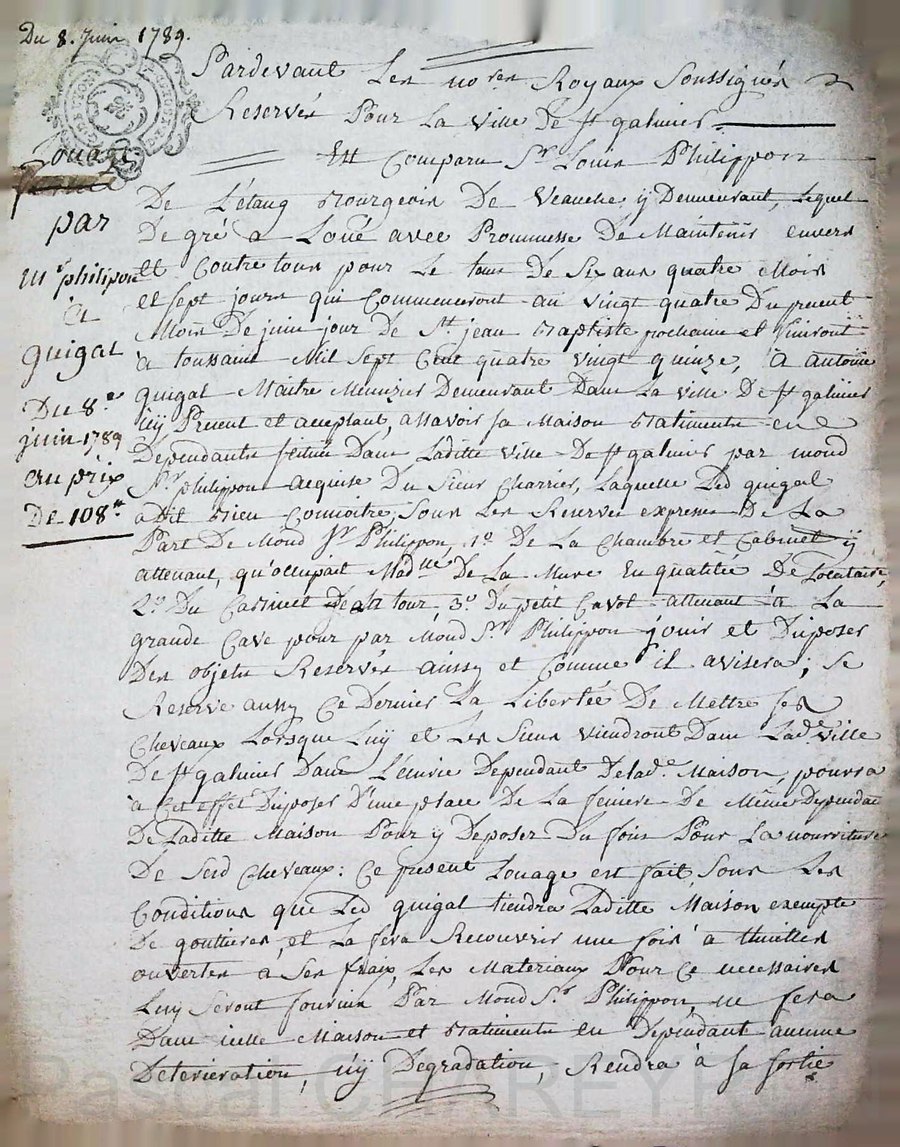 Du 8. Juin 1789.
Pardevant Les no.res Royaux Soussignés
Reservés Pour La Ville De St galmier.
Est Comparu Sr. Louis Philippon
De L'étang Bourgeois De Veauche, ÿ Demeurant, Lequel
De gré a Loüé avec Prommesse De Maintenir envers
et Contre tous pour Le tems De Six ans quatre Mois
et Sept jours qui Commenceront au vingt quatre Du present
Mois De juin jour de St. jean Baptiste prochaine et finiront
à toussaint Mil Sept Cent quatre vingt quinze, à antoine
guigal Maitre Menuzier Demeurant Dans La ville De St galmier
icy Present et acceptant, assavoir sa Maison Batimente en
Dependants scituée Dans Laditte ville De St galmier par mond
Sr. philippon acquise Du Sieur Charrier, Laquelle Led guigal
a Dit Bien Connoitre, Sous Les Reserves expresses De La
Part De Mond Sr Philippon, 1.o De La Chambre et Cabinet ÿ
attenant, qu'occupait Madlle De La Mure En qualitée De Locataire,
2.o Du Cabinet De la tour 3.o Du petit Cavot attenant à La
grande Cave pour par Mond Sr. Philippon jouir et Disposer
Des objets Reservés ainsy et Comme il avisera; Se
Reserve aussy Ce Dernier La Libertée De Mettre ses
Chevaux Lorsque Luÿ et Les Siens viendront Dans Lad.e Ville
De St galmier Dans L'écurie Dependant De lad.e Maison, pourra
à Cet effet Disposer D'une place De La feniere De Même Dependan
De Laditte Maison Pour ÿ Deposer Du foin Pour La nourriture
De Sesd Chevaux: Ce present Louage est fait Sous Les
Conditions que Led guigal tiendra Laditte Maison exempte
De gouttieres, et La fera Recouvrir une fois à thuilles
ouvertes à Ses fraix, Les Materiaux Pour Ce necessaires
Luy Seront fournis Par Mond Sr. Philippon, ne fera
Dans icelle Maison et Batiments en Dependant aucune
Deterieration, n'ÿ Degradation, Rendra à Sa Sortie
Louage
par
Mr. philipon
a
guigal
Du 8.e
juin 1789
au prix
De 108tt
Pascal CHAREYRON